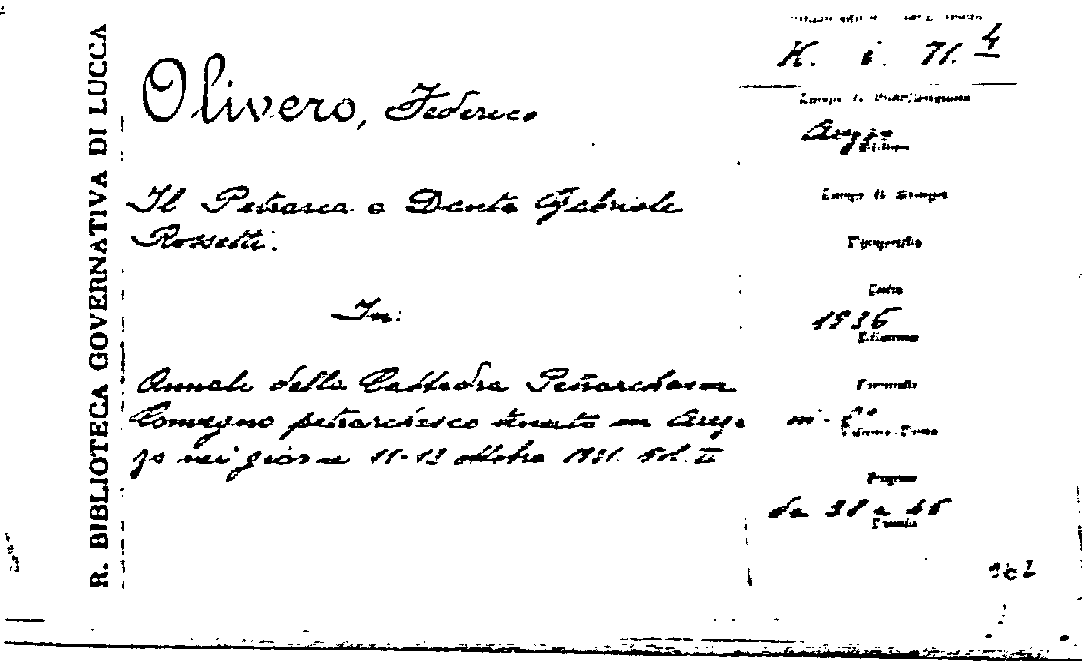 R. BIBLIOTECA GOVERNATIVA DI LUCCA
Olivero, Federico
Il Petrarca e Dante Gabriele
Rossetti.
In:
Annali della Cattedra Petrarchesca
Convegno petrarchesco tenuto in Arez
zo nei giorni 11-13 ottobre 1931. Vol. II
K. i. 71. 4
Luogo di Pubblicazione
Arezzo
Editore
Luogo di Stampa
Tipografia
Data
1936
Edizione
Formato
in - 8°
Volume
Pagine
da 38 a 46